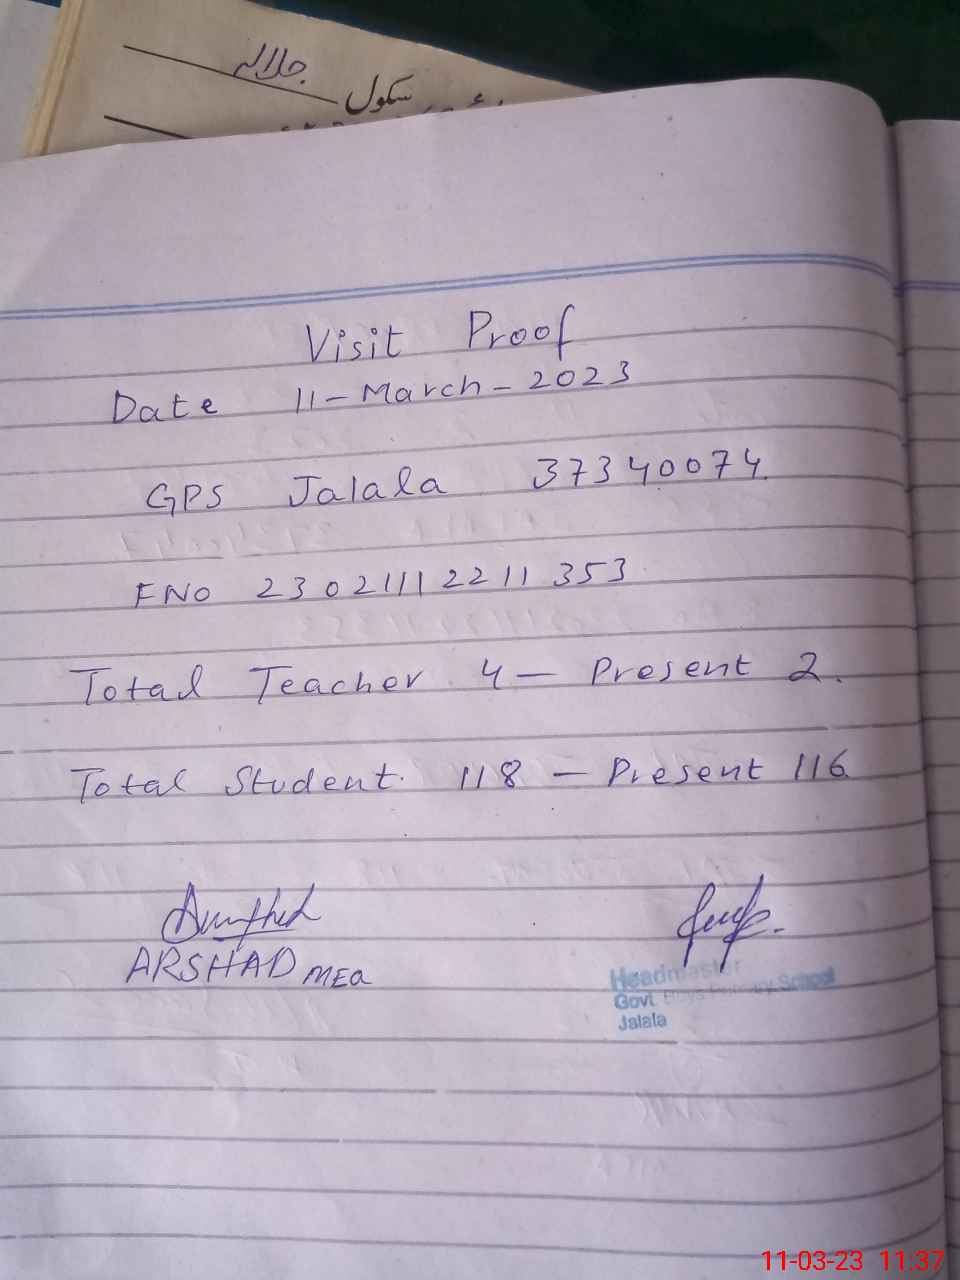 جلاله
سکول
Visit Proof
Date 11-March-2023
GPS Jalala 37340074
FNo 23021112211353
Total Teacher 4 — Present 2.
Total Student 118 — Present 116
ARSHAD MEA
Headmaster
Govt Boys Primary School
Jalala
11-03-23 11:37